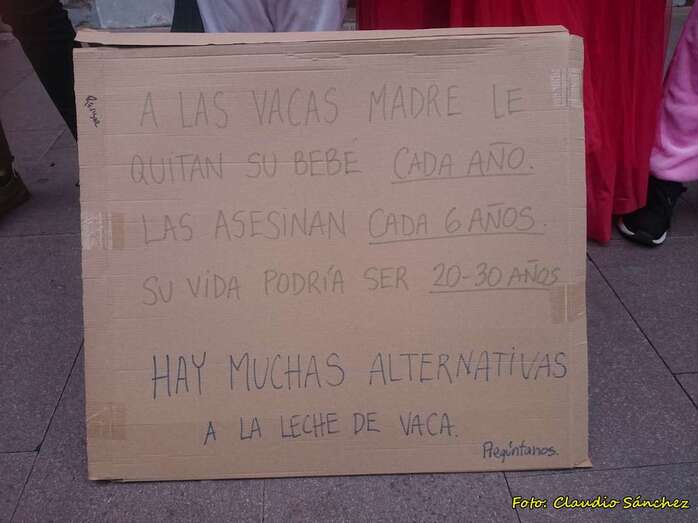 A LAS VACAS MADRE LE
QUITAN SU BEBÉ CADA AÑO.
LAS ASESINAN CADA 6 AÑOS.
SU VIDA PODRÍA SER 20-30 AÑOS
HAY MUCHAS ALTERNATIVAS
A LA LECHE DE VACA.
Pregúntanos.
Foto: Claudio Sánchez